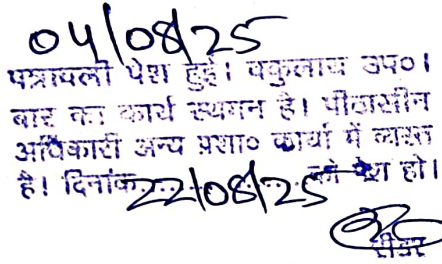 04/08/25
पत्रावली पेश हुई। वकुलाय उप०।
बार का कार्य स्थगन है। पीठासीन
अधिकारी अन्य प्रशा० कार्यो में व्यस्त
है। दिनांक 22/08/25 को पेश हो।
रीडर